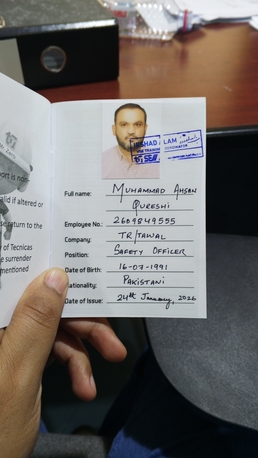 port is no
alid if altered or
se return to the
y of Tecnicas
e surrender
mentioned
RSHAD A LAM
Full name: MUHAMMAD AHSAN
QURESHI
Employee No.: 2609849555
Company: TR/TAWAL
Position: SAFETY OFFICER
Date of Birth: 16-07-1991
Nationality: PAKISTANI
Date of Issue: 24th January, 2026